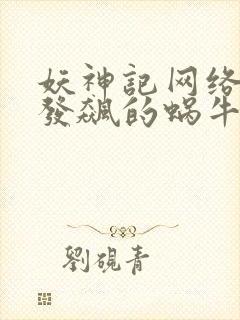 妖神記网络
發飆的蜗牛
劉硯青